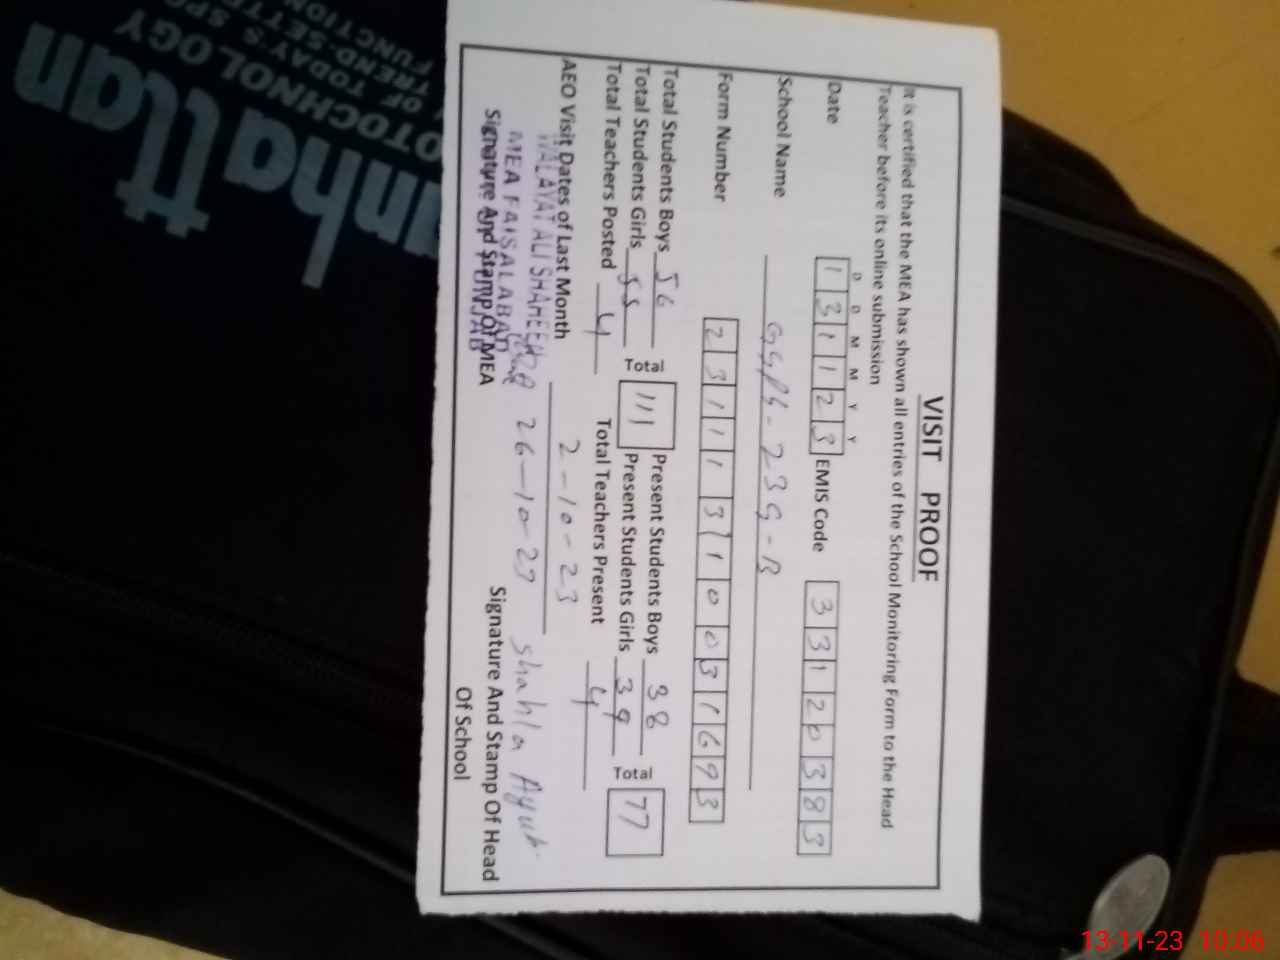 VISIT PROOF
It is certified that the MEA has shown all entries of the School Monitoring Form to the Head
Teacher before its online submission
D D M M Y Y
Date 1 3 1 1 2 3 EMIS Code 3 3 1 2 0 3 8 3
School Name GGPS-239-B
Form Number 2 3 1 1 1 3 1 0 0 3 1 6 9 3
Total Students Boys 56 Total 111 Present Students Boys 38 Total 77
Total Students Girls 55 Present Students Girls 39
Total Teachers Posted 4 Total Teachers Present 4
AEO Visit Dates of Last Month 2-10-23
26-10-23
WALAYAT ALI SHAHEEN
MEA FAISALABAD
PUNJAB
Shahla Ayub
Signature And Stamp Of MEA Signature And Stamp Of Head
Of School
anhattan
OTOCHNOLOGY
OF TODAY'S
TREND-SETT
FUNCTION
13-11-23 10:06